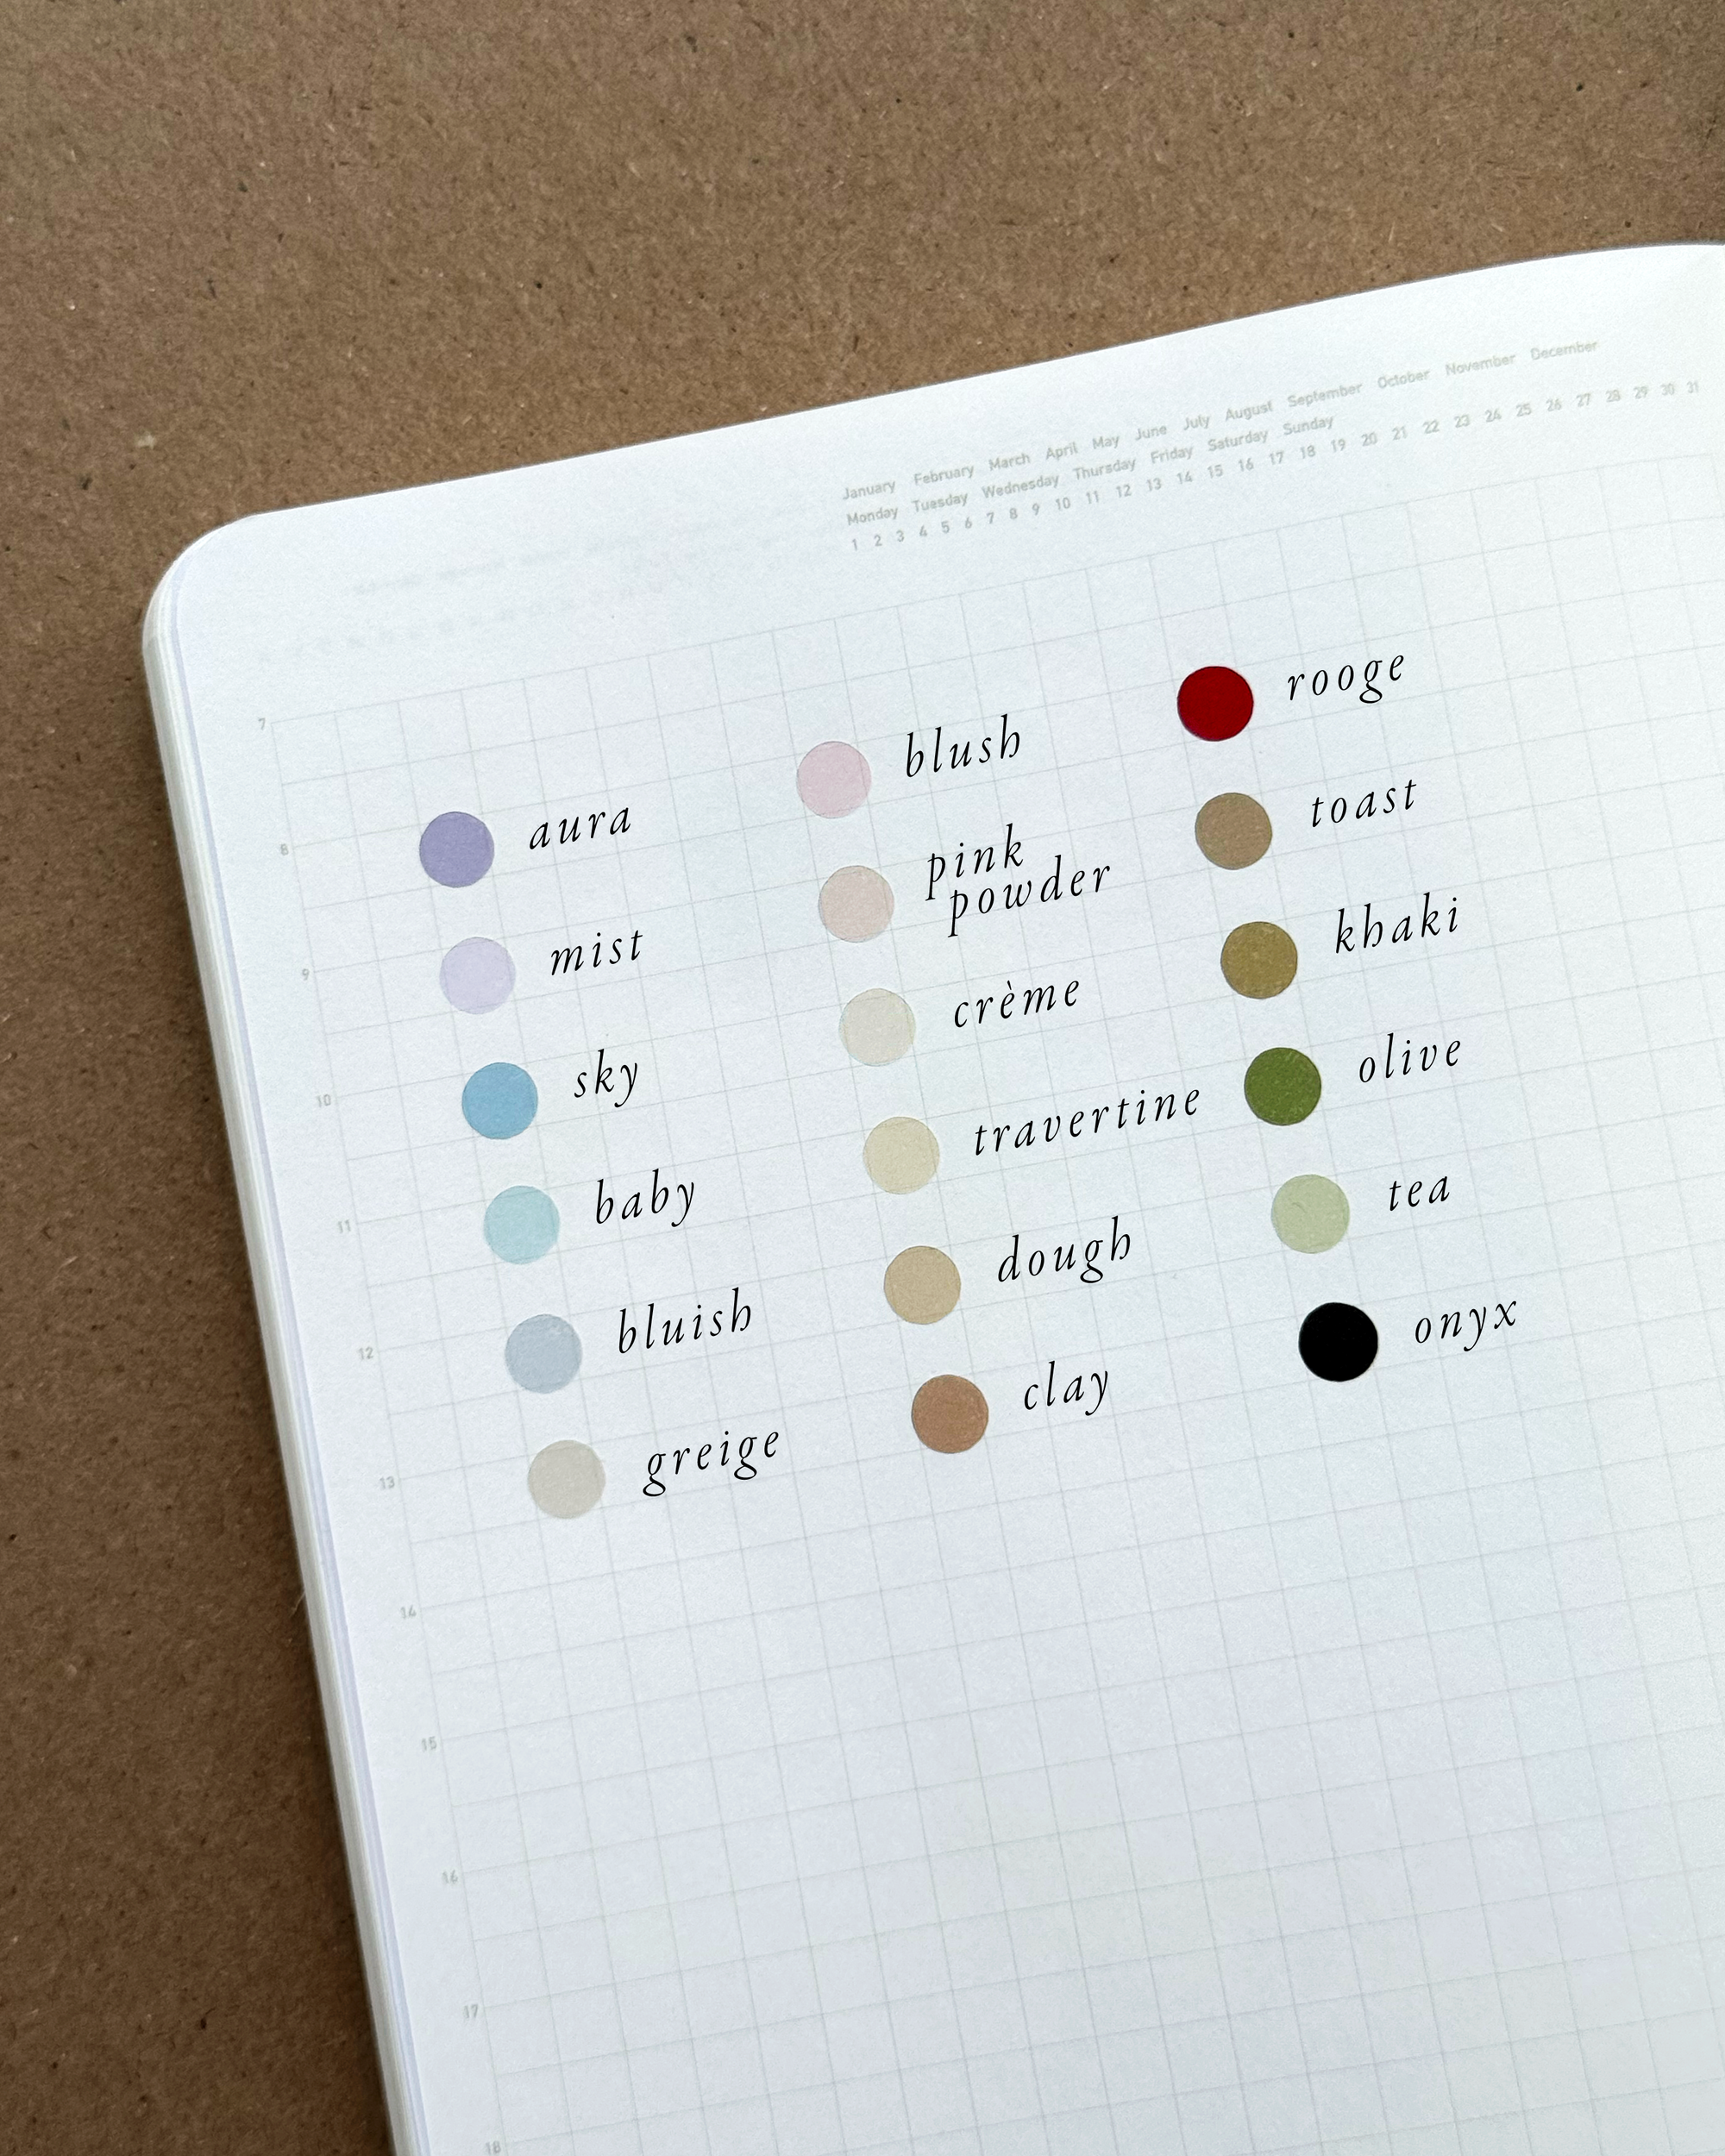 January February March April May June July August September October November December
Monday Tuesday Wednesday Thursday Friday Saturday Sunday
1 2 3 4 5 6 7 8 9 10 11 12 13 14 15 16 17 18 19 20 21 22 23 24 25 26 27 28 29 30 31
7
8
9
10
11
12
13
14
15
16
17
18
aura
mist
sky
baby
bluish
greige
blush
pink
powder
crème
travertine
dough
clay
rooge
toast
khaki
olive
tea
onyx